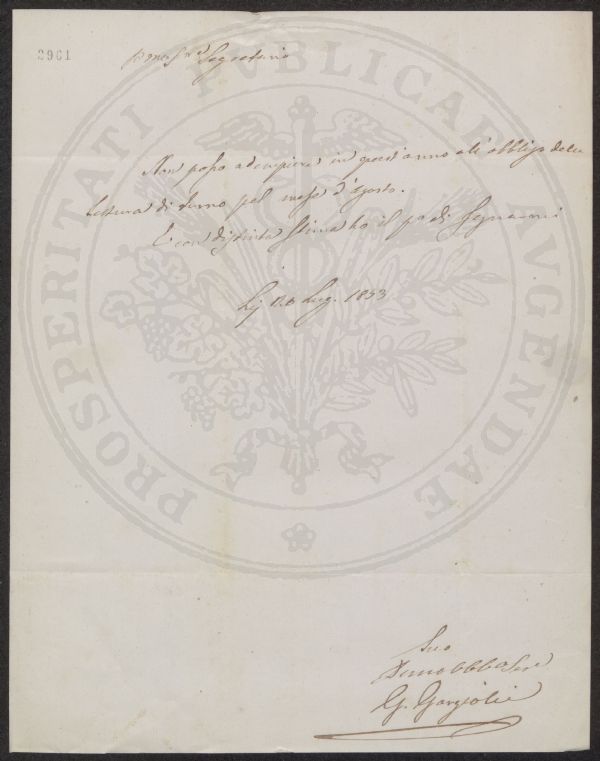 2961
Segretario
Non posso adempiere in quest'anno all'obbligo della
lettura di turno pel mese d'Agosto.
E con distinta stima ho il di segnarmi
Lug. 1853
Suo
G. Gargiolli
PROSPERITATI PVBLICAE AVGENDAE